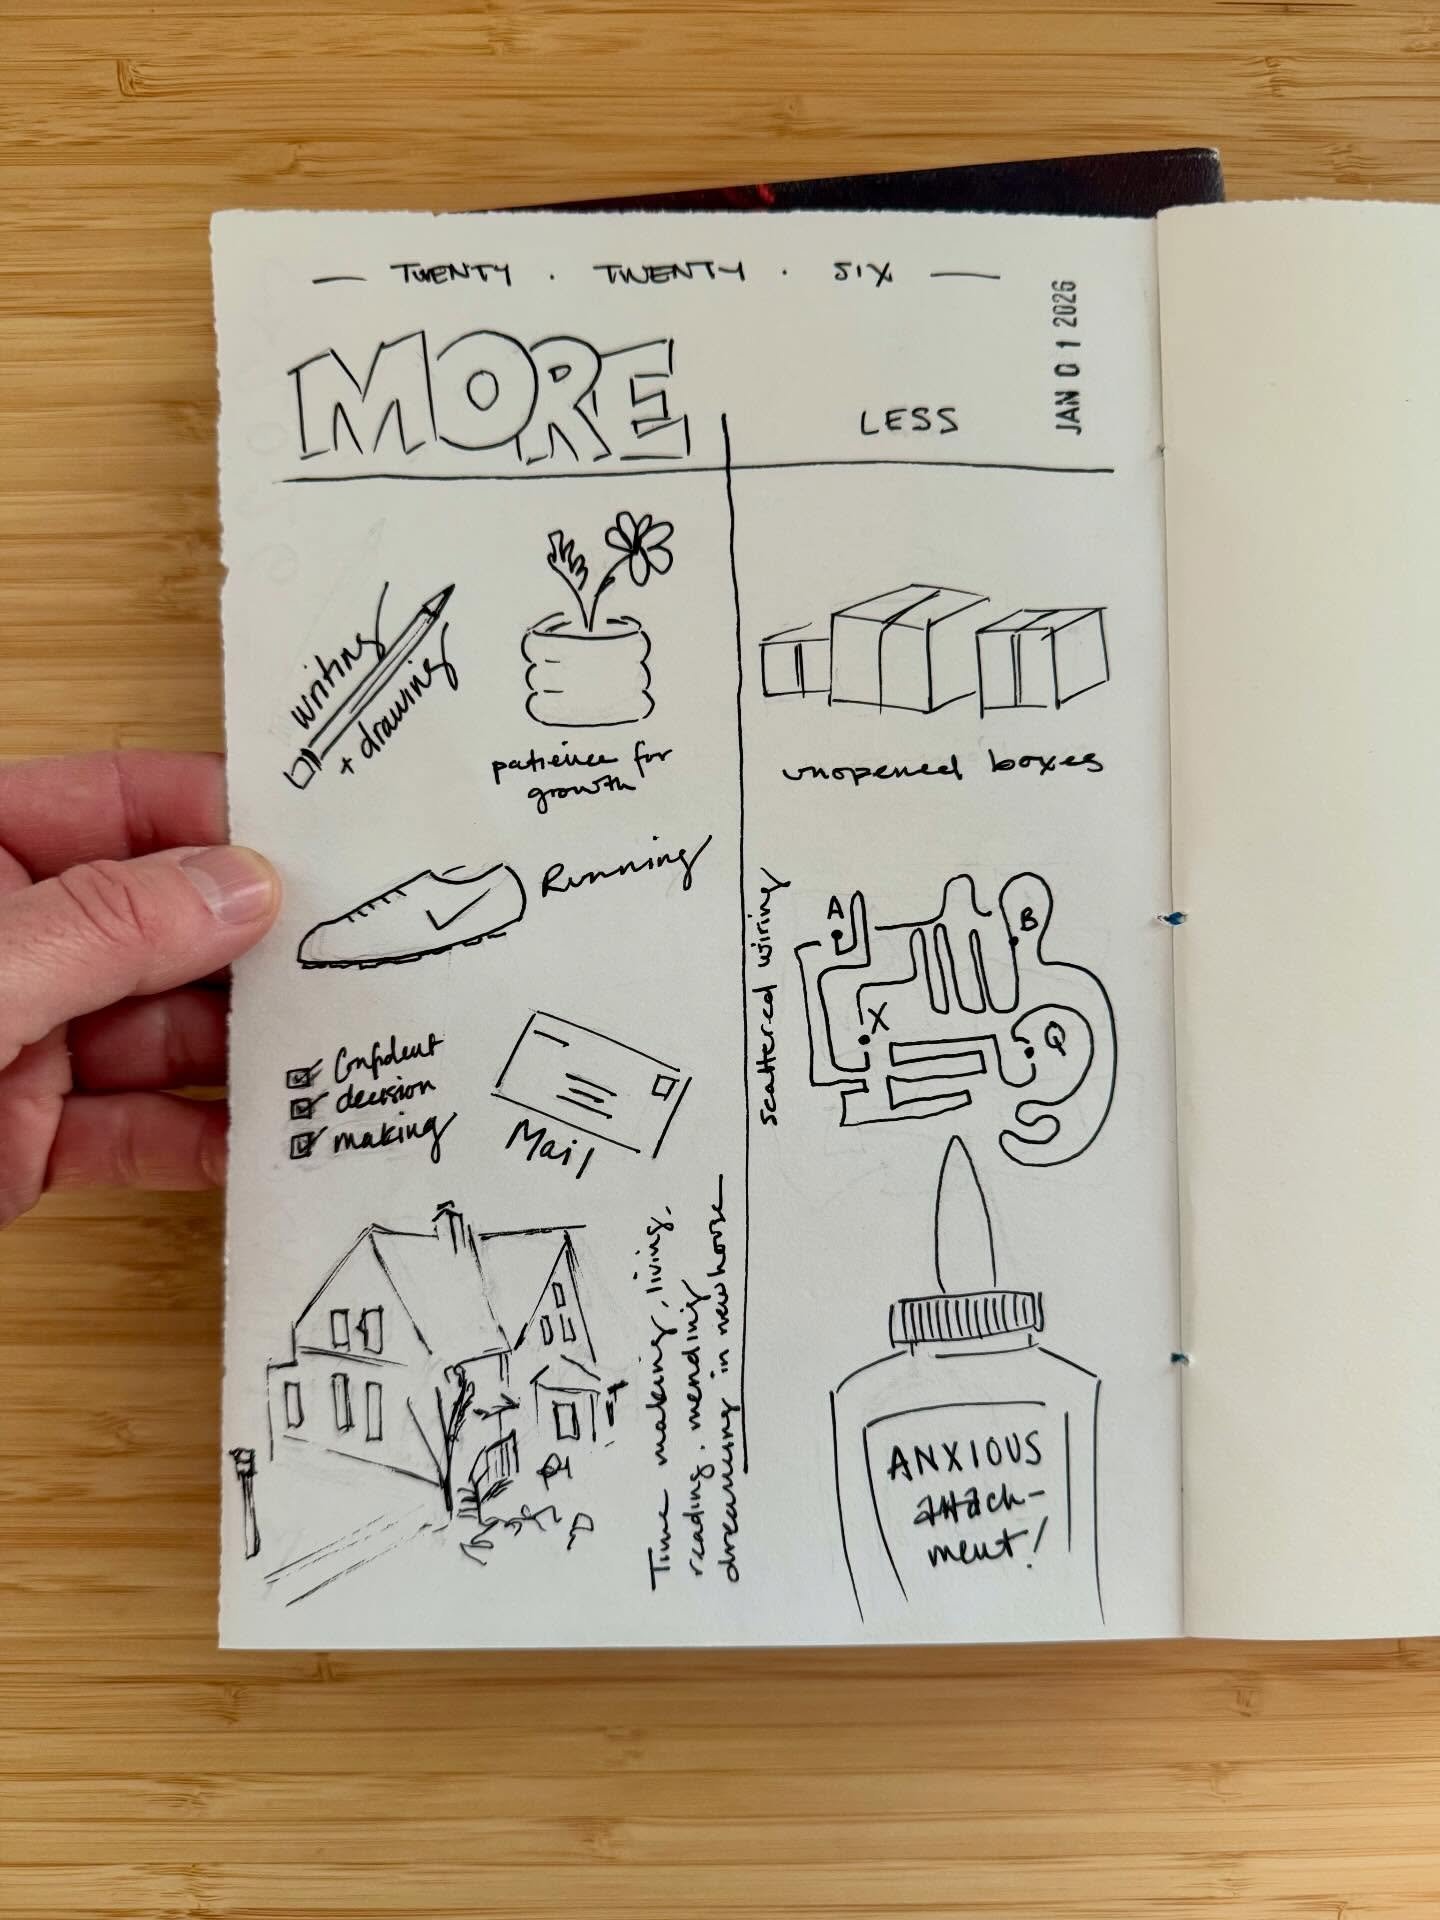 — TWENTY · TWENTY · SIX —
JAN 01 2026
MORE
LESS
writing
+ drawing
patience for
growth
Running
Confident
decision
making
Mail
Time making, living,
reading, mending
dreaming in new house
unopened boxes
scattered wiring
A
B
X
Q
ANXIOUS
attach-
ment!